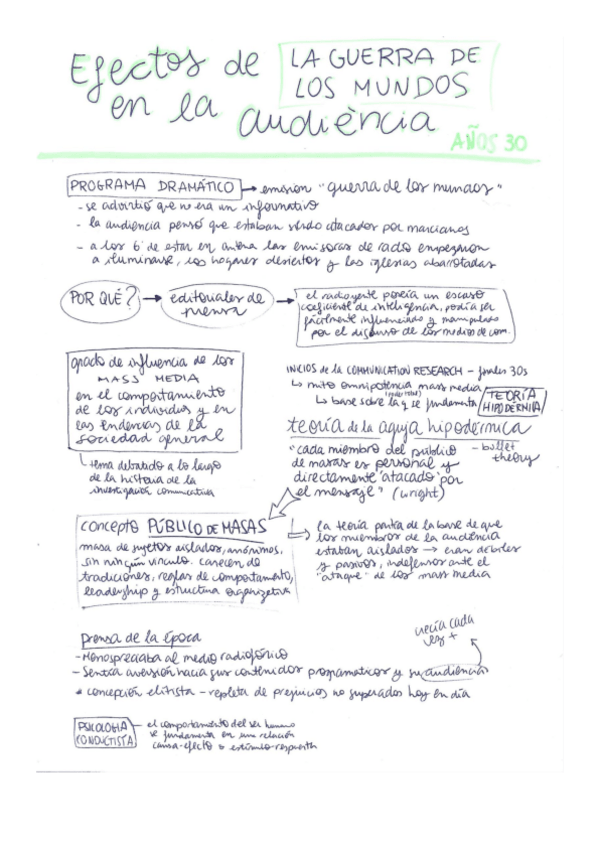 Efectos de LA GUERRA DE
LOS MUNDOS
en la audiència
AÑOS 30
PROGRAMA DRAMÁTICO → emisión "guerra de los mundos"
- se advirtió que no era un informativo
- la audiencia pensó que estaban siendo atacados por marcianos
- a los 6' de estar en antena las emisoras de radio empezaron
a iluminarse, los hogares desiertos y las iglesias abarrotadas
POR QUÉ? → editoriales de
prensa
→ el radioyente poseía un escaso
coeficiente de inteligencia, podía ser
fácilmente influenciado y manipulado
por el discurso de los medios de com.
grado de influencia de los
MASS MEDIA
en el comportamiento
de los individuos y en
las tendencias de la
sociedad general
↳ tema debatido a lo largo
de la historia de la
investigación comunicativa
INICIOS de la COMMUNICATION RESEARCH - finales 30s
↳ mito omnipotencia mass media
↳ base sobre la q se fundamenta TEORÍA
HIPODÉRMICA
teoría de la aguja hipodérmica
- bullet
theory
"cada miembro del público
de masas es personal y
directamente "atacado" por
el mensaje" (wright)
concepto PÚBLICO DE MASAS
masa de sujetos aislados, anónimos,
sin ningún vínculo. carecen de
tradiciones, reglas de comportamiento,
leadership y estructura organizativa
↳ la teoría partía de la base de que
los miembros de la audiencia
estaban aislados → eran débiles
y pasivos, indefensos ante el
"ataque" de los mass media
prensa de la época
- Menospreciaba al medio radiofónico
- Sentía aversión hacia sus contenidos programáticos y su audiencia
crecía cada
vez +
* concepción elitista - repleta de prejuicios no superados hoy en día
PSICOLOGIA
CONDUCTISTA
- el comportamiento del ser humano
se fundamenta en una relación
causa-efecto o estímulo-respuesta